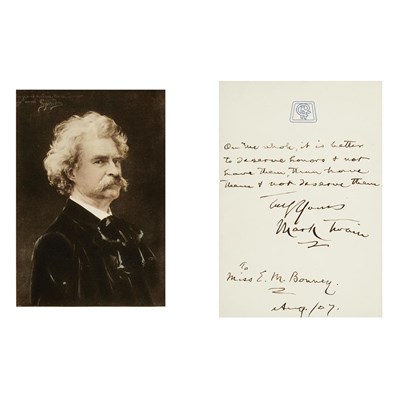 On the whole, it is better
to deserve honors & not
have them, than have
them & not deserve them
Truly Yours
Mark Twain
To
Miss E. M.
Aug./07.